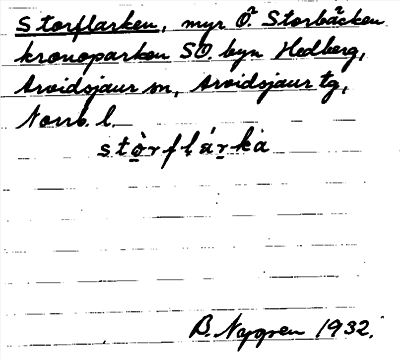 Storflarken, myr Ö. Storbäcken
kronoparken SO. byn Hedberg,
Arvidsjaur sn, Arvidsjaur tg,
Norrb. l.
stòrflárka
B. Nygren 1932.